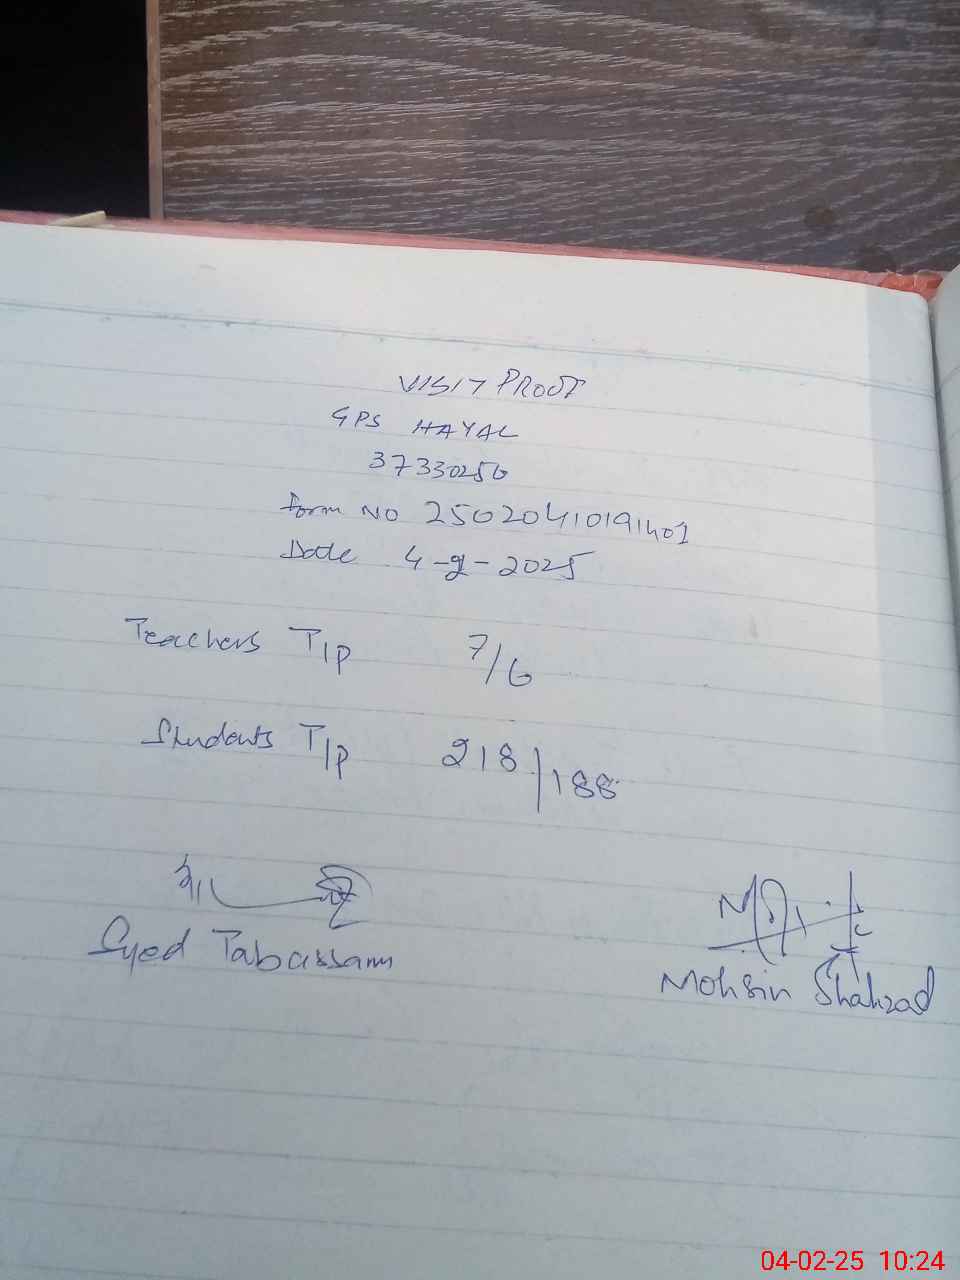 VISIT PROOF
GPS HAYAL
37330256
Form No 25020410191401
Date 4-2-2025
Teachers T/P 7/6
Students T/P 218/188
Syed Tabassam
Mohsin Shahzad
04-02-25 10:24